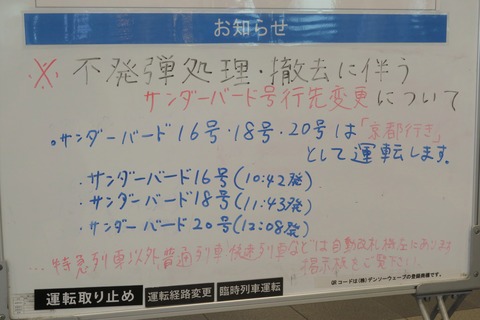 お知らせ
※ 不発弾処理・撤去に伴う
サンダーバード号行先変更について
。サンダーバード16号・18号・20号は「京都行き」
として運転します。
・サンダーバード16号(10:42発)
・サンダーバード18号(11:43発)
・サンダーバード20号(12:08発)
…特急列車以外普通列車・快速列車などは自動改札機左にあります
掲示板をご覧下さい。
QRコードは(株)デンソーウェーブの登録商標です。
運転取り止め 運転経路変更 臨時列車運転